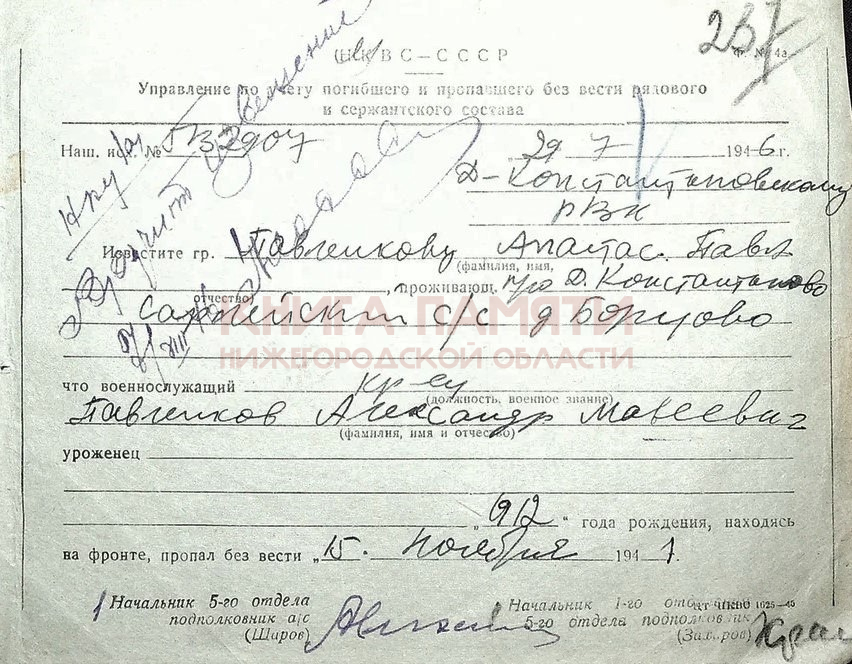 237
НКВС—СССР
ф. № 4а
Управление по учету погибшего и пропавшего без вести рядового
и сержантского состава
Наш. исх. № 32907 29 7 1946 г.
Д-Константиновскому
РВК
Известите гр. Павленкову Анастас. Павл
(фамилия, имя,
отчество)
, проживающ. Д. Константиново
с/с д Борцово
КНИГА ПАМЯТИ
НИЖЕГОРОДСКОЙ ОБЛАСТИ
что военнослужащий кр-ец
(должность, военное звание)
Павленков Александр Матвеевич
(фамилия, имя и отчество)
уроженец
„912“ года рождения, находясь
на фронте, пропал без вести „15. Ноября 1941.
Начальник 5-го отдела
подполковник а/с
(Широв)
Начальник 1-го отд
5-го отдела подполковник